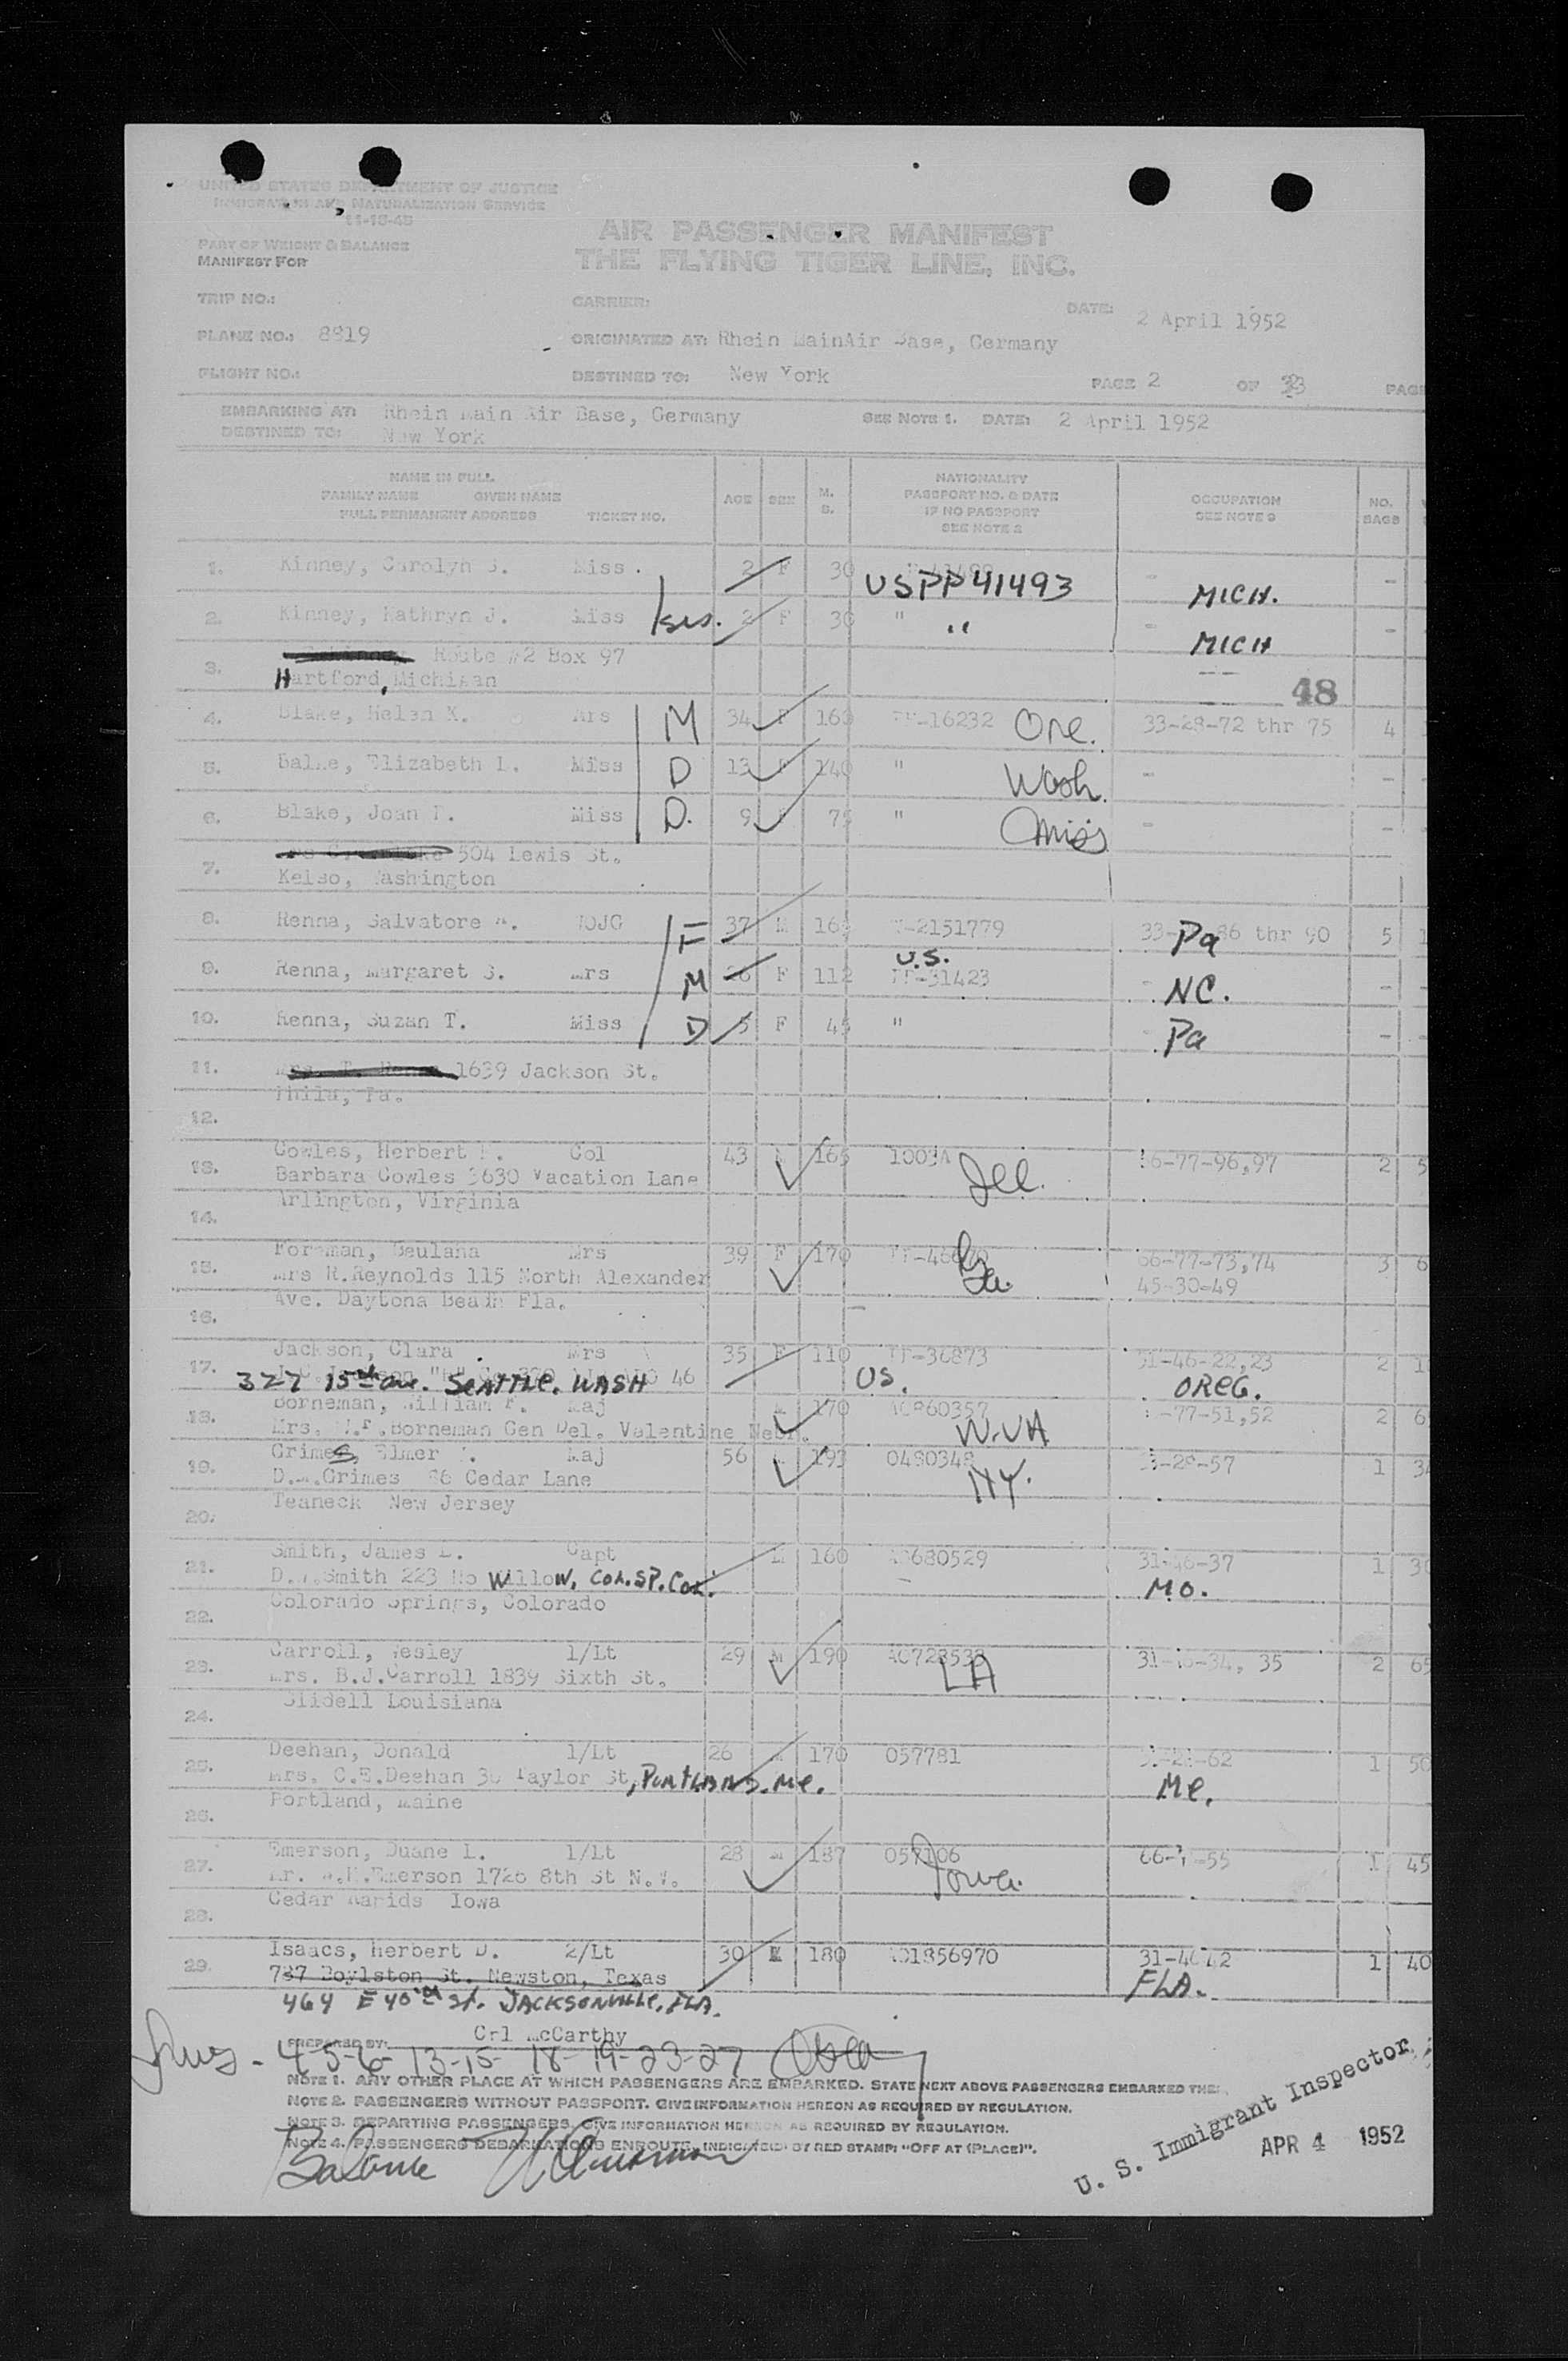 UNITED STATES DEPARTMENT OF JUSTICE
IMMIGRATION AND NATURALIZATION SERVICE
11-18-48
PART OF WEIGHT & BALANCE
MANIFEST FOR
AIR PASSENGER MANIFEST
THE FLYING TIGER LINE, INC.
TRIP NO.: CARRIER: DATE: 2 April 1952
PLANE NO.: 8819 ORIGINATED AT: Rhein MainAir Base, Germany
FLIGHT NO.: DESTINED TO: New York PAGE 2 OF 33 PAGE
EMBARKING AT: Rhein Main Air Base, Germany SEE NOTE 1. DATE: 2 April 1952
DESTINED TO: New York
NAME IN FULL
FAMILY NAME GIVEN NAME
FULL PERMANENT ADDRESS TICKET NO.
AGE SEX M. S.
NATIONALITY
PASSPORT NO. & DATE
IF NO PASSPORT
SEE NOTE 2
OCCUPATION
SEE NOTE 3
NO. BAGS
1. Kinney, Carolyn S. Miss. 2 F 30 - -
USPP41493 MICH.
2. Kinney, Kathryn J. Miss sis. 2 F 30 " " - MICH -
3. Route #2 Box 97
Hartford, Michigan 48
4. Blake, Helen K. Mrs M 34 F 160 PP-16232 Ore. 33-28-72 thr 75 4
5. Balke, Elizabeth L. Miss D 13 F 140 " Wash. - -
6. Blake, Joan Miss D. 9 F 75 " Miss - -
7. 504 Lewis St.
Kelso, Washington
8. Renna, Salvatore A. WOJG F 37 M 165 W-2151779 33- 86 thr 90 Pa 5 1
9. Renna, Margaret S. Mrs M 26 F 112 U.S. PP-31423 - NC. -
10. Renna, Suzan T. Miss D 5 F 45 " Pa -
11. 1639 Jackson St.
Phila, Pa.
12.
13. Cowles, Herbert Col 43 M 165 1003A Ill. 66-77-96,97 2 5
Barbara Cowles 3630 Vacation Lane
Arlington, Virginia
14.
15. Foreman, Beulaha Mrs 39 F 170 Ga. 66-77-73,74 3 6
Mrs R.Reynolds 115 North Alexander 45-30-49
Ave. Daytona Beach Fla.
16.
17. Jackson, Clara Mrs 35 F 110 PP-36873 31-46-22,23 2 1
327 15th Ave. SEATTLE. WASH US. OREG.
18. Borneman, William F. Maj M 170 AO860357 W.VA -77-51,52 2 6
Mrs. W.F.Borneman Gen Del. Valentine Nebr.
19. Grimes, Elmer Maj 56 M 193 0480348 NY. -28-57 1 34
D. Grimes 86 Cedar Lane
Teaneck New Jersey
20.
21. Smith, James L. Capt M 160 AO680529 31-46-37 1 30
D. Smith 223 No Willow, COL.SP.COL. MO.
Colorado Springs, Colorado
22.
23. Carroll, Wesley 1/Lt 29 M 190 LA 31-46-34, 35 2 65
Mrs. B.J.Carroll 1839 Sixth St.
Slidell Louisiana
24.
25. Deehan, Donald 1/Lt 26 M 170 057781 -62 1 50
Mrs. C.E.Deehan 30 Taylor St, PORTLAND. Me. Me.
Portland, Maine
26.
27. Emerson, Duane L. 1/Lt 28 M 187 057106 Iowa. 66- -55 1 45
Mr. Emerson 1726 8th St N.W.
Cedar Rapids Iowa
28.
29. Isaacs, Herbert D. 2/Lt 30 M 180 AO1856970 31-4 42 1 40
737 Boylston St. Newston, Texas FLA.
464 E 40th St. JACKSONVILLE, FLA.
PREPARED BY: Crl McCarthy
4-5-6- 13-15- 18-19-23-27
NOTE 1. ANY OTHER PLACE AT WHICH PASSENGERS ARE EMBARKED. STATE NEXT ABOVE PASSENGERS EMBARKED
NOTE 2. PASSENGERS WITHOUT PASSPORT. GIVE INFORMATION HEREON AS REQUIRED BY REGULATION.
NOTE 3. DEPARTING PASSENGERS. GIVE INFORMATION HEREON AS REQUIRED BY REGULATION.
NOTE 4. PASSENGERS DEBARKATIONS ENROUTE, INDICATED BY RED STAMP: "OFF AT (PLACE)".
Balance
U. S. Immigrant Inspector
APR 4 1952